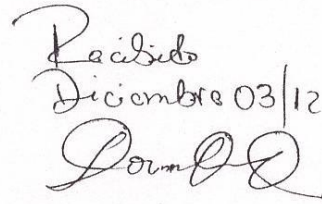 Recibido
Diciembre 03/12